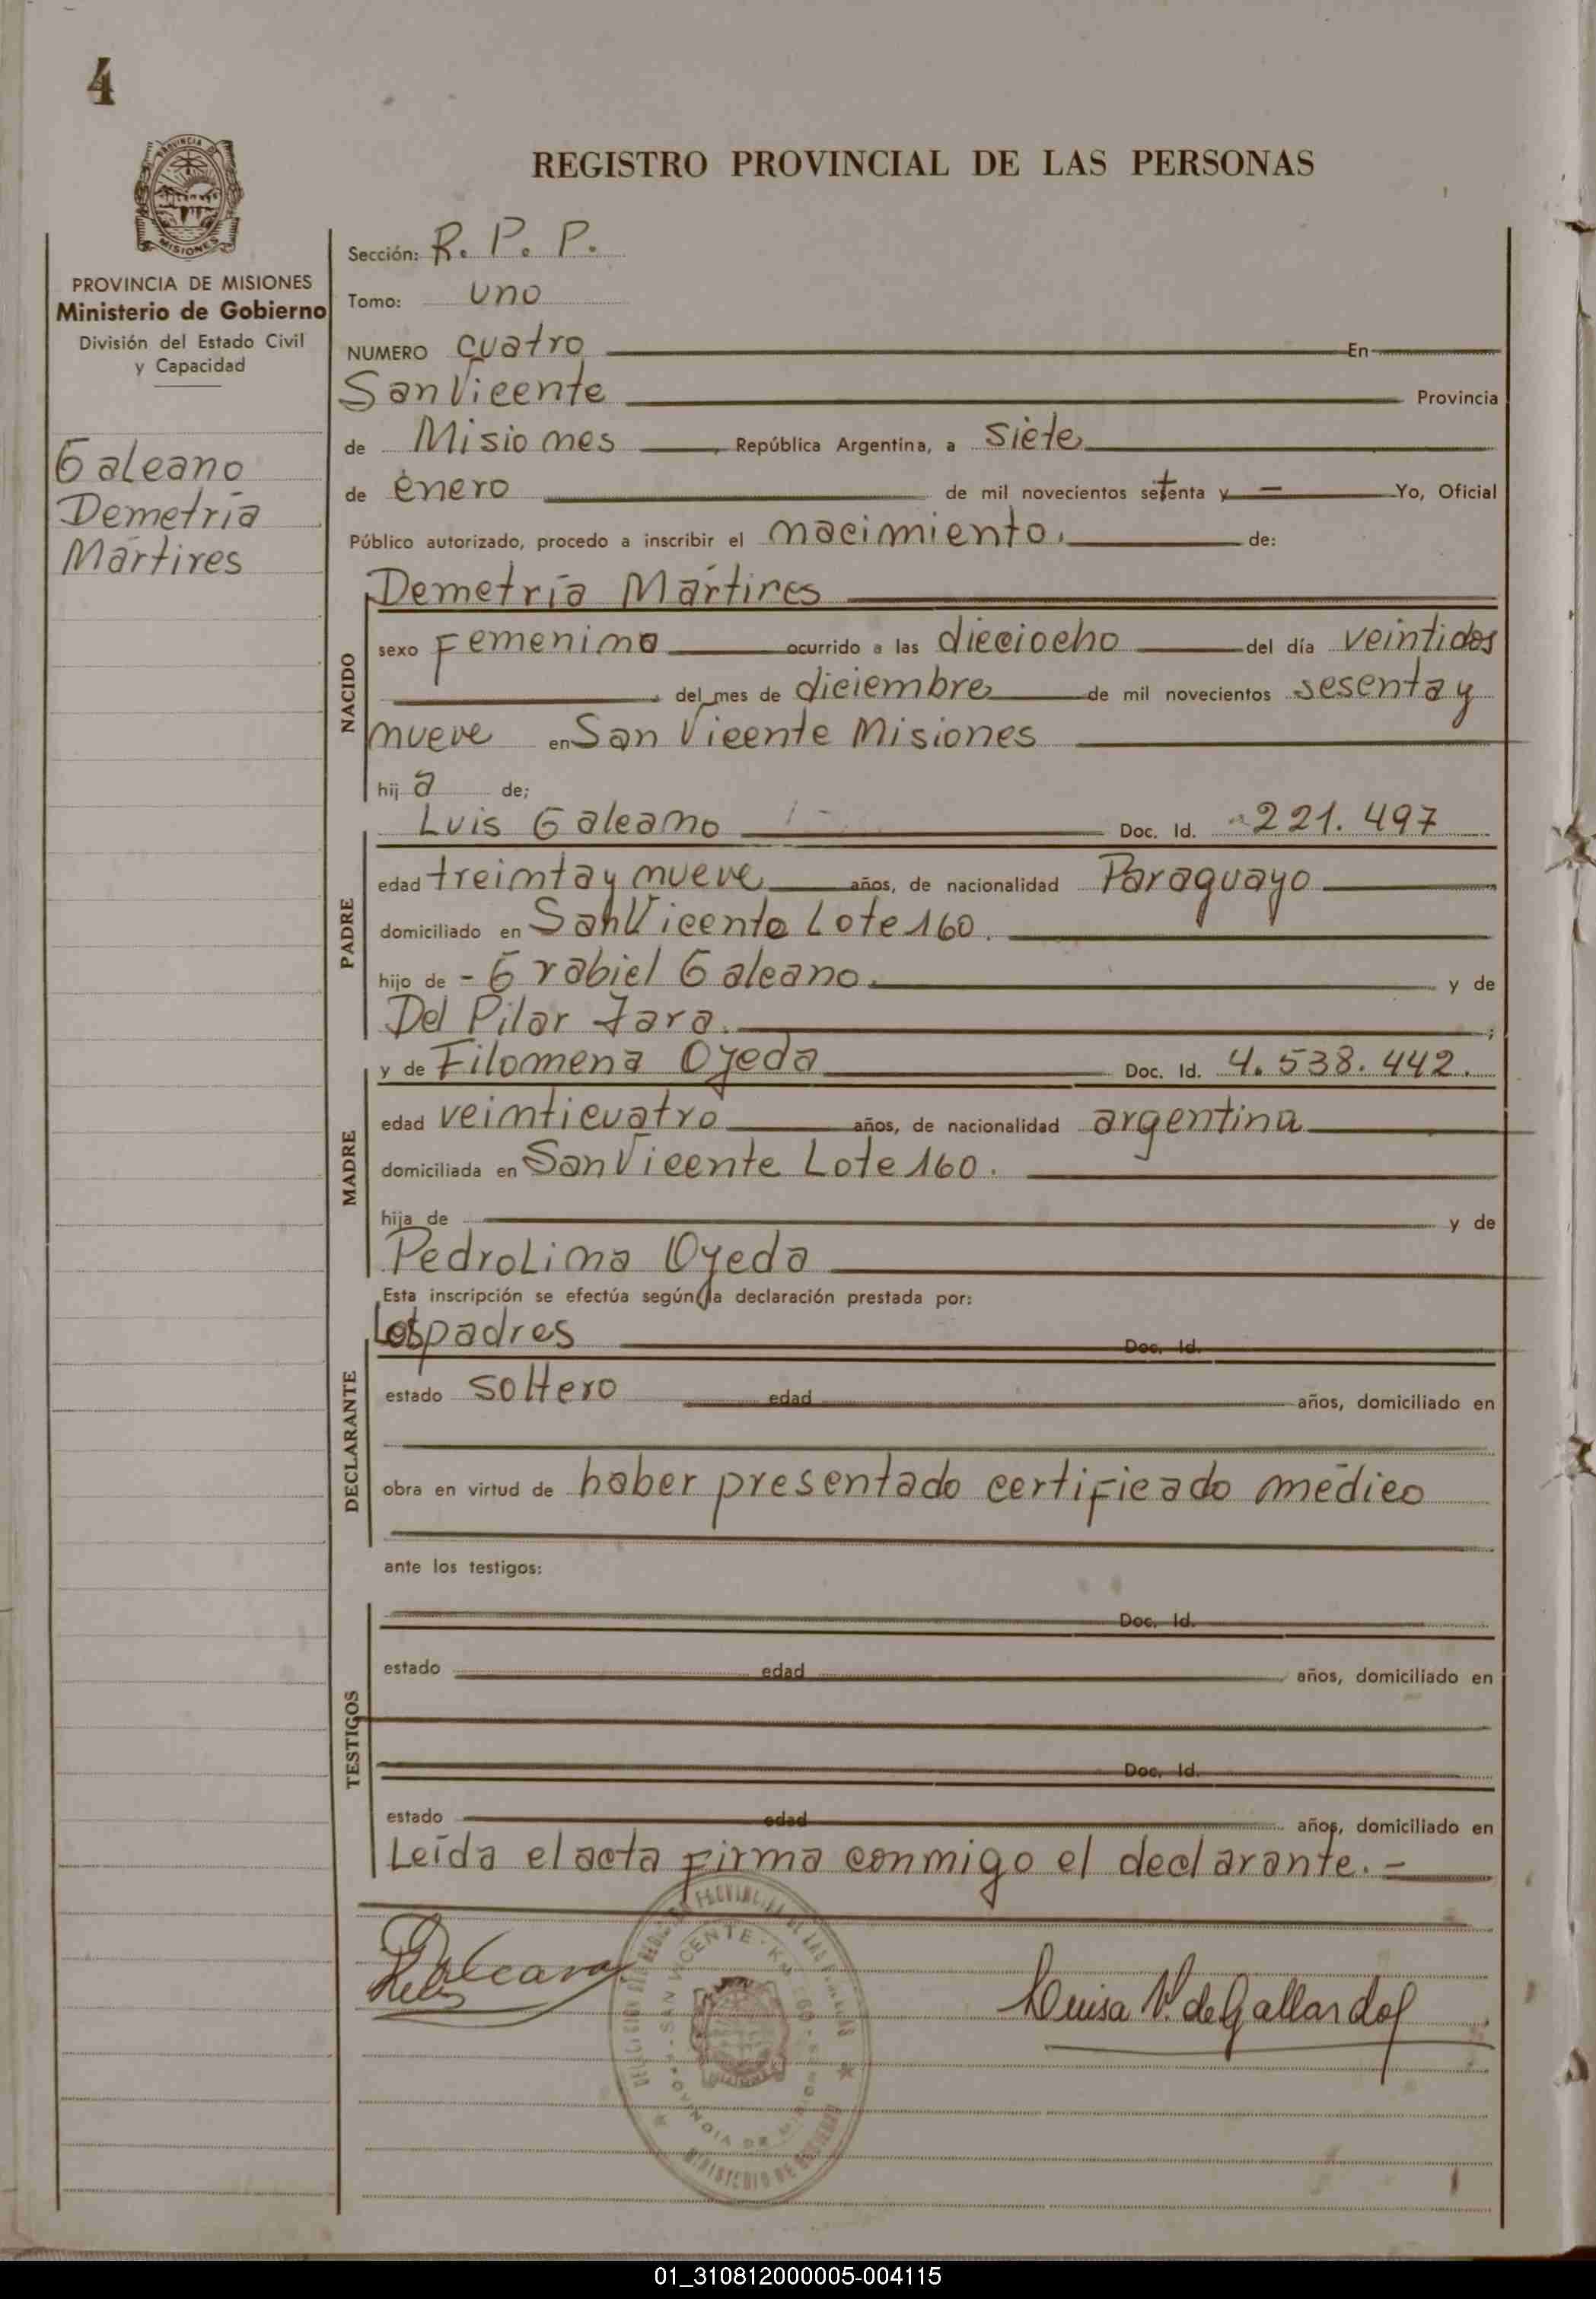 4
REGISTRO PROVINCIAL DE LAS PERSONAS
PROVINCIA DE MISIONES
Ministerio de Gobierno
División del Estado Civil
y Capacidad
Galeano
Demetria
Mártires
Sección: R. P. P.
Tomo: uno
NUMERO cuatro En
San Vicente Provincia
de Misiones, República Argentina, a siete
de enero de mil novecientos setenta y — Yo, Oficial
Público autorizado, procedo a inscribir el nacimiento. de:
NACIDO
Demetria Mártires
sexo Femenino ocurrido a las dieciocho del día veintidos
del mes de diciembre de mil novecientos sesenta y
nueve en San Vicente Misiones
hij a de;
PADRE
Luis Galeano Doc. Id. 221.497
edad treinta y nueve años, de nacionalidad Paraguayo
domiciliado en San Vicente Lote 160.
hijo de - Grabiel Galeano. y de
Del Pilar Jara.
MADRE
y de Filomena Ojeda Doc. Id. 4.538.442.
edad veinticuatro años, de nacionalidad argentina
domiciliada en San Vicente Lote 160.
hija de y de
Pedrolina Ojeda
Esta inscripción se efectúa según la declaración prestada por:
DECLARANTE
Los padres Doc. Id.
estado soltero edad años, domiciliado en
obra en virtud de haber presentado certificado médico
ante los testigos:
TESTIGOS
Doc. Id.
estado edad años, domiciliado en
Doc. Id.
estado edad años, domiciliado en
Leída el acta firma conmigo el declarante.-
Luisa V. de Gallardo
SAN VICENTE
PROVINCIA DE MISIONES
MINISTERIO DE GOBIERNO
01_310812000005-004115